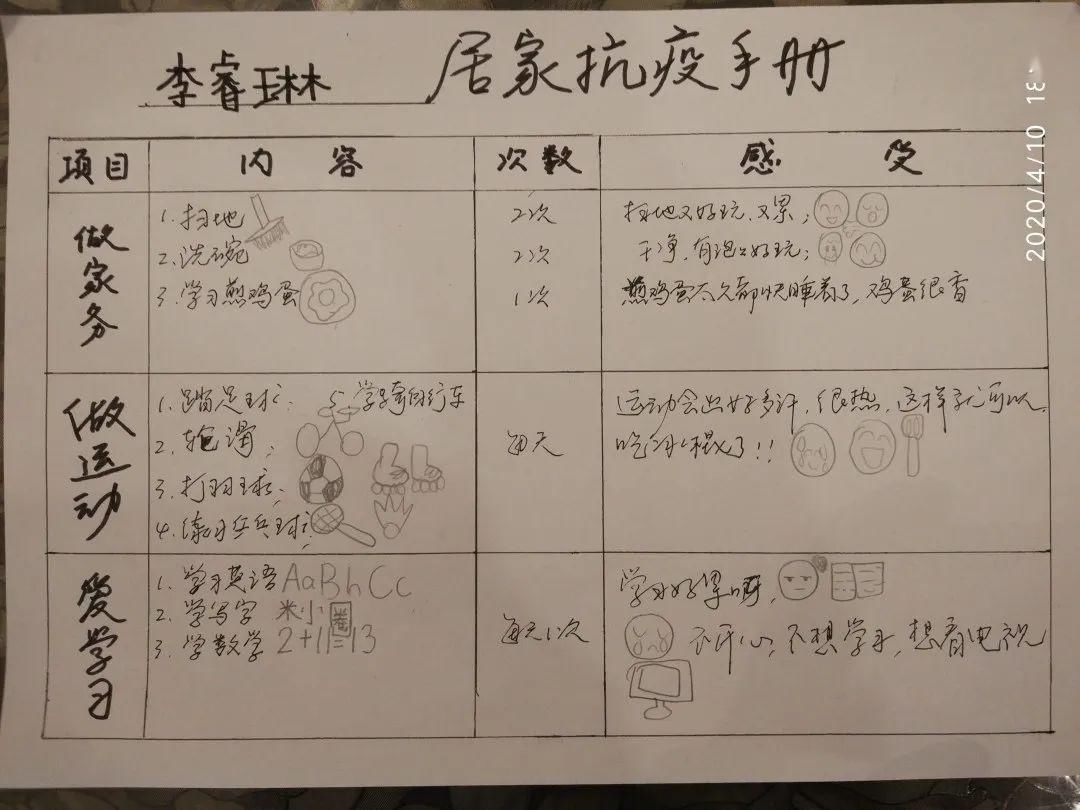 李睿琳 居家抗疫手册
2020/4/10 18
项目 内 容 次数 感 受
做家务
1.扫地 2次 扫地又好玩、又累;
2.洗碗 2次 干净,有泡泡好玩;
3.学习煎鸡蛋 1次 煎鸡蛋太久都快睡着了,鸡蛋很香
做运动
1.踢足球; 5.学骑自行车
2.轮滑;
3.打羽球;
4.练习乒乓球;
每天
运动会出好多汗,很热,这样就可以
吃冰棍了!!
爱学习
1.学习英语 AaBbCc
2.学写字 米小圈
3.学数学 2+11=13
每天1次
学习好累啊,
不开心,不想学习,想看电视